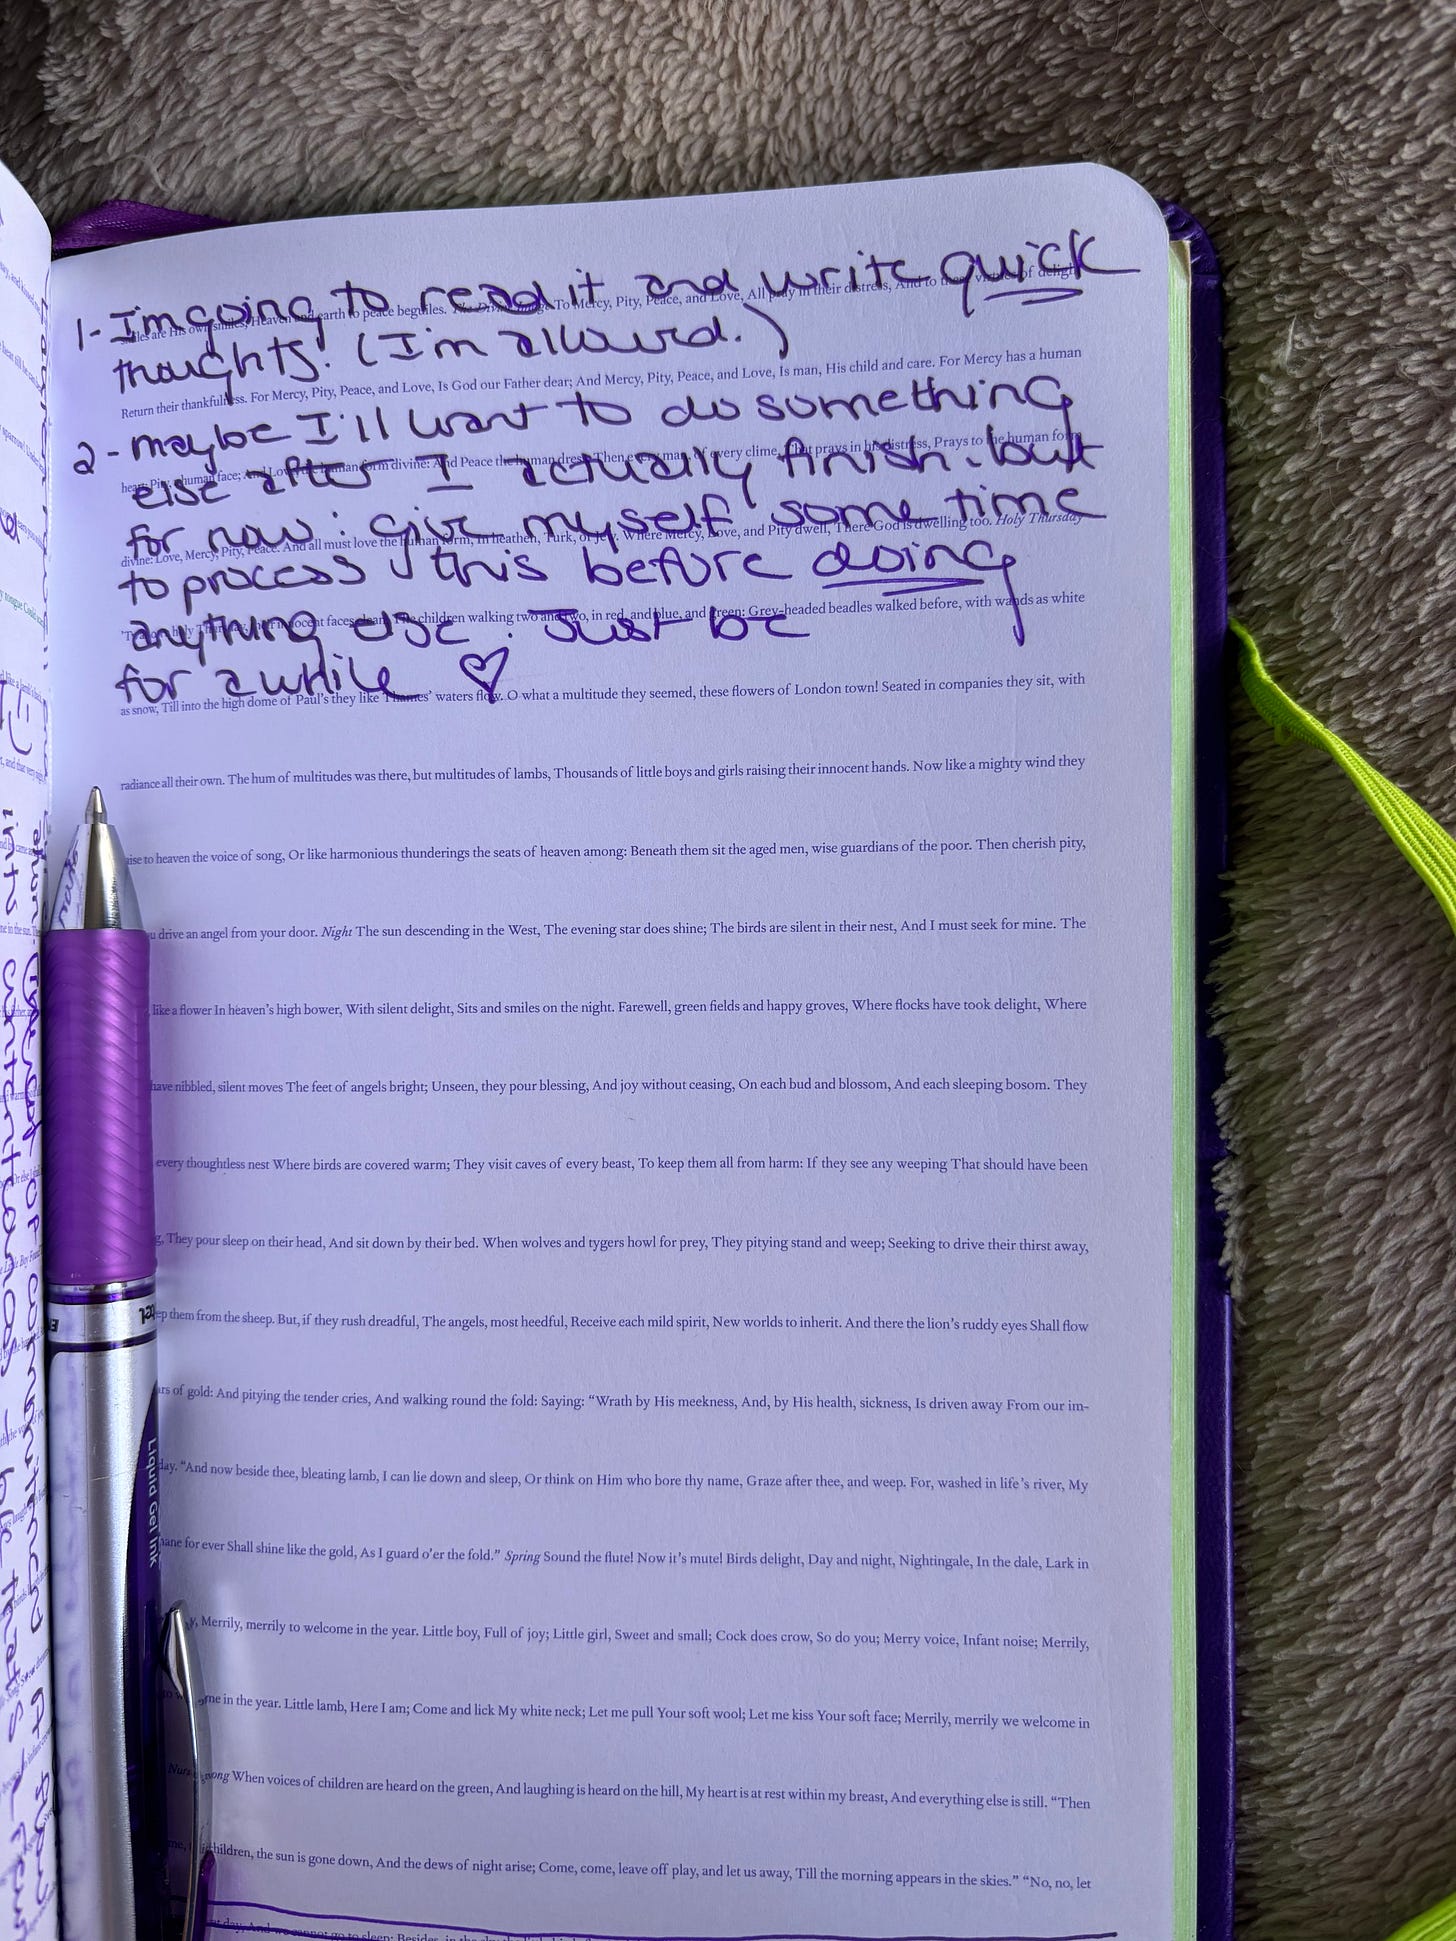 1- I'm going to read it and write quick
thoughts! (I'm allowed.)
2- maybe I'll want to do something
else after I actually finish. but
for now: give myself some time
to process this before doing
anything else. Just be
for a while ♡
smiles are His own smiles, Heaven and earth to peace beguiles. The Divine Image To Mercy, Pity, Peace, and Love, All pray in their distress, And to these virtues of delight
Return their thankfulness. For Mercy, Pity, Peace, and Love, Is God our Father dear; And Mercy, Pity, Peace, and Love, Is man, His child and care. For Mercy has a human
heart; Pity, a human face; And Love, the human form divine: And Peace the human dress. Then every man, of every clime, That prays in his distress, Prays to the human form
divine: Love, Mercy, Pity, Peace. And all must love the human form, In heathen, Turk, or Jew. Where Mercy, Love, and Pity dwell, There God is dwelling too. Holy Thursday
innocent faces clean, The children walking two and two, in red, and blue, and green: Grey-headed beadles walked before, with wands as white
as snow, Till into the high dome of Paul's they like Thames' waters flow. O what a multitude they seemed, these flowers of London town! Seated in companies they sit, with
radiance all their own. The hum of multitudes was there, but multitudes of lambs, Thousands of little boys and girls raising their innocent hands. Now like a mighty wind they
raise to heaven the voice of song, Or like harmonious thunderings the seats of heaven among: Beneath them sit the aged men, wise guardians of the poor. Then cherish pity,
drive an angel from your door. Night The sun descending in the West, The evening star does shine; The birds are silent in their nest, And I must seek for mine. The
like a flower In heaven's high bower, With silent delight, Sits and smiles on the night. Farewell, green fields and happy groves, Where flocks have took delight, Where
have nibbled, silent moves The feet of angels bright; Unseen, they pour blessing, And joy without ceasing, On each bud and blossom, And each sleeping bosom. They
every thoughtless nest Where birds are covered warm; They visit caves of every beast, To keep them all from harm: If they see any weeping That should have been
They pour sleep on their head, And sit down by their bed. When wolves and tygers howl for prey, They pitying stand and weep; Seeking to drive their thirst away,
them from the sheep. But, if they rush dreadful, The angels, most heedful, Receive each mild spirit, New worlds to inherit. And there the lion's ruddy eyes Shall flow
of gold: And pitying the tender cries, And walking round the fold: Saying: "Wrath by His meekness, And, by His health, sickness, Is driven away From our im-
day. "And now beside thee, bleating lamb, I can lie down and sleep, Or think on Him who bore thy name, Graze after thee, and weep. For, washed in life's river, My
mane for ever Shall shine like the gold, As I guard o'er the fold." Spring Sound the flute! Now it's mute! Birds delight, Day and night, Nightingale, In the dale, Lark in
Merrily, merrily to welcome in the year. Little boy, Full of joy; Little girl, Sweet and small; Cock does crow, So do you; Merry voice, Infant noise; Merrily,
in the year. Little lamb, Here I am; Come and lick My white neck; Let me pull Your soft wool; Let me kiss Your soft face; Merrily, merrily we welcome in
When voices of children are heard on the green, And laughing is heard on the hill, My heart is at rest within my breast, And everything else is still. "Then
children, the sun is gone down, And the dews of night arise; Come, come, leave off play, and let us away, Till the morning appears in the skies." "No, no, let
Liquid Gel Ink